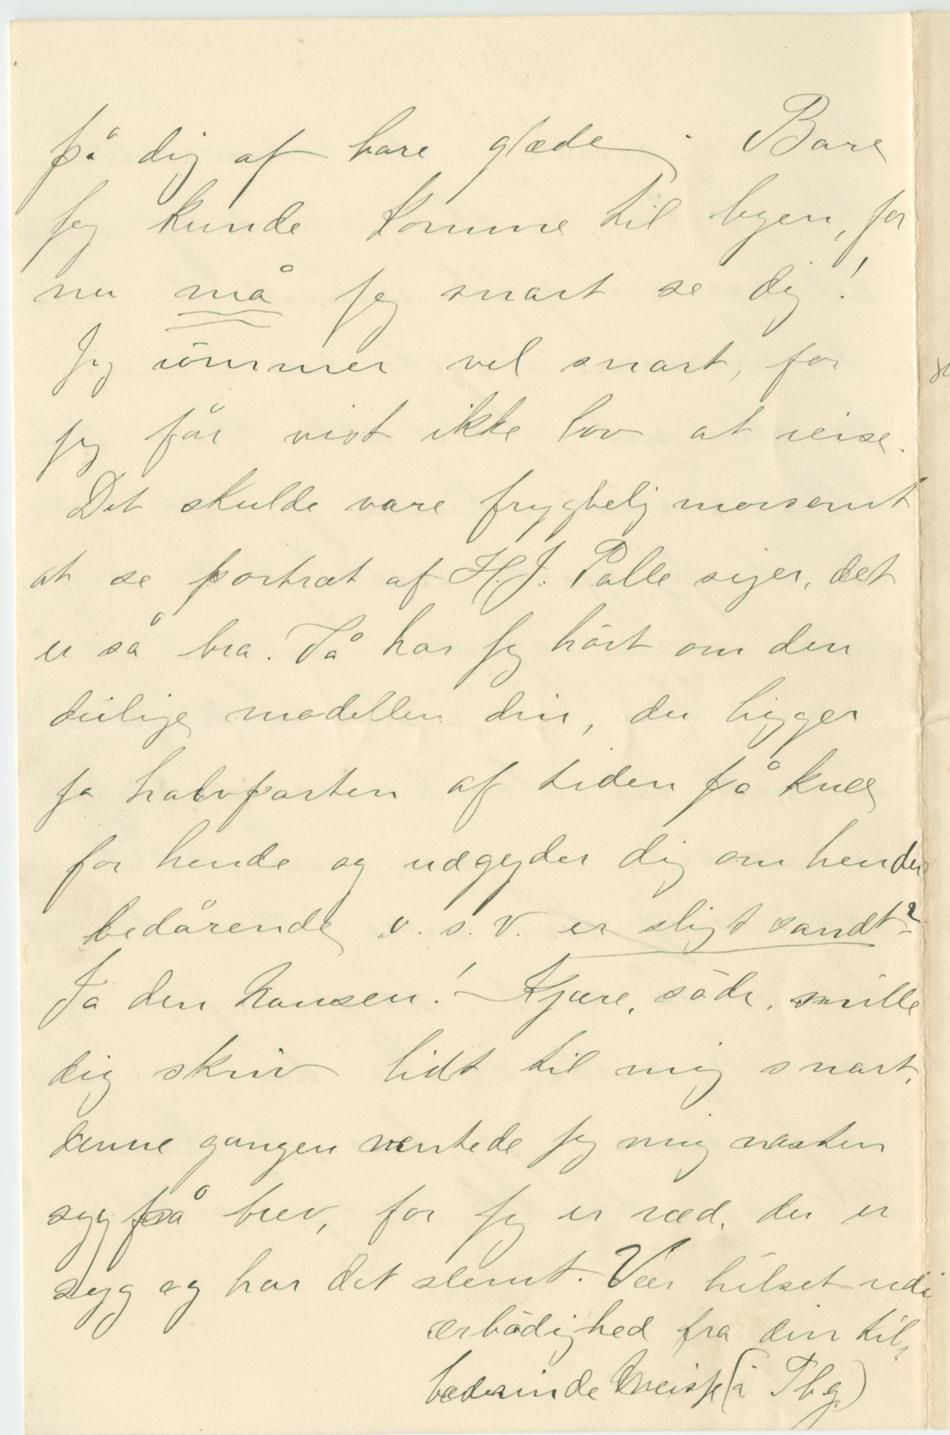 på dig af bare glæde. Bare
jeg kunde komme til byen, for
nu må jeg snart se dig!
Jeg kommer vel snart, for
jeg får vist ikke lov at reise.
Det skulde være frygtelig morsomt
at se portræt af H. J. Palle siger, det
er så bra. Så har jeg hört om den
deilige modellen din, du ligger
ja halvparten af tiden på knæ
for hende og udgyder dig om hendes
bedårende o. s. v. er sligt sandt?
Ja den Hansen! – Kjære, söde, snille
dig skriv lidt til mig snart,
denne gangen ventede jeg mig næsten
syg på brev, for jeg er ræd, du er
syg og har det slemt. Vær hilset udi
ærbödighed fra din til-
bederinde (i Tbg)